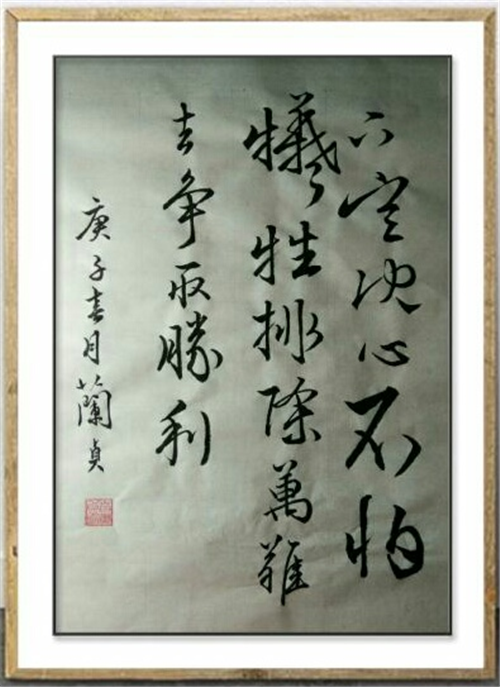 下定决心不怕
犠牲排除萬難
去争取勝利
庚子春月蘭貞